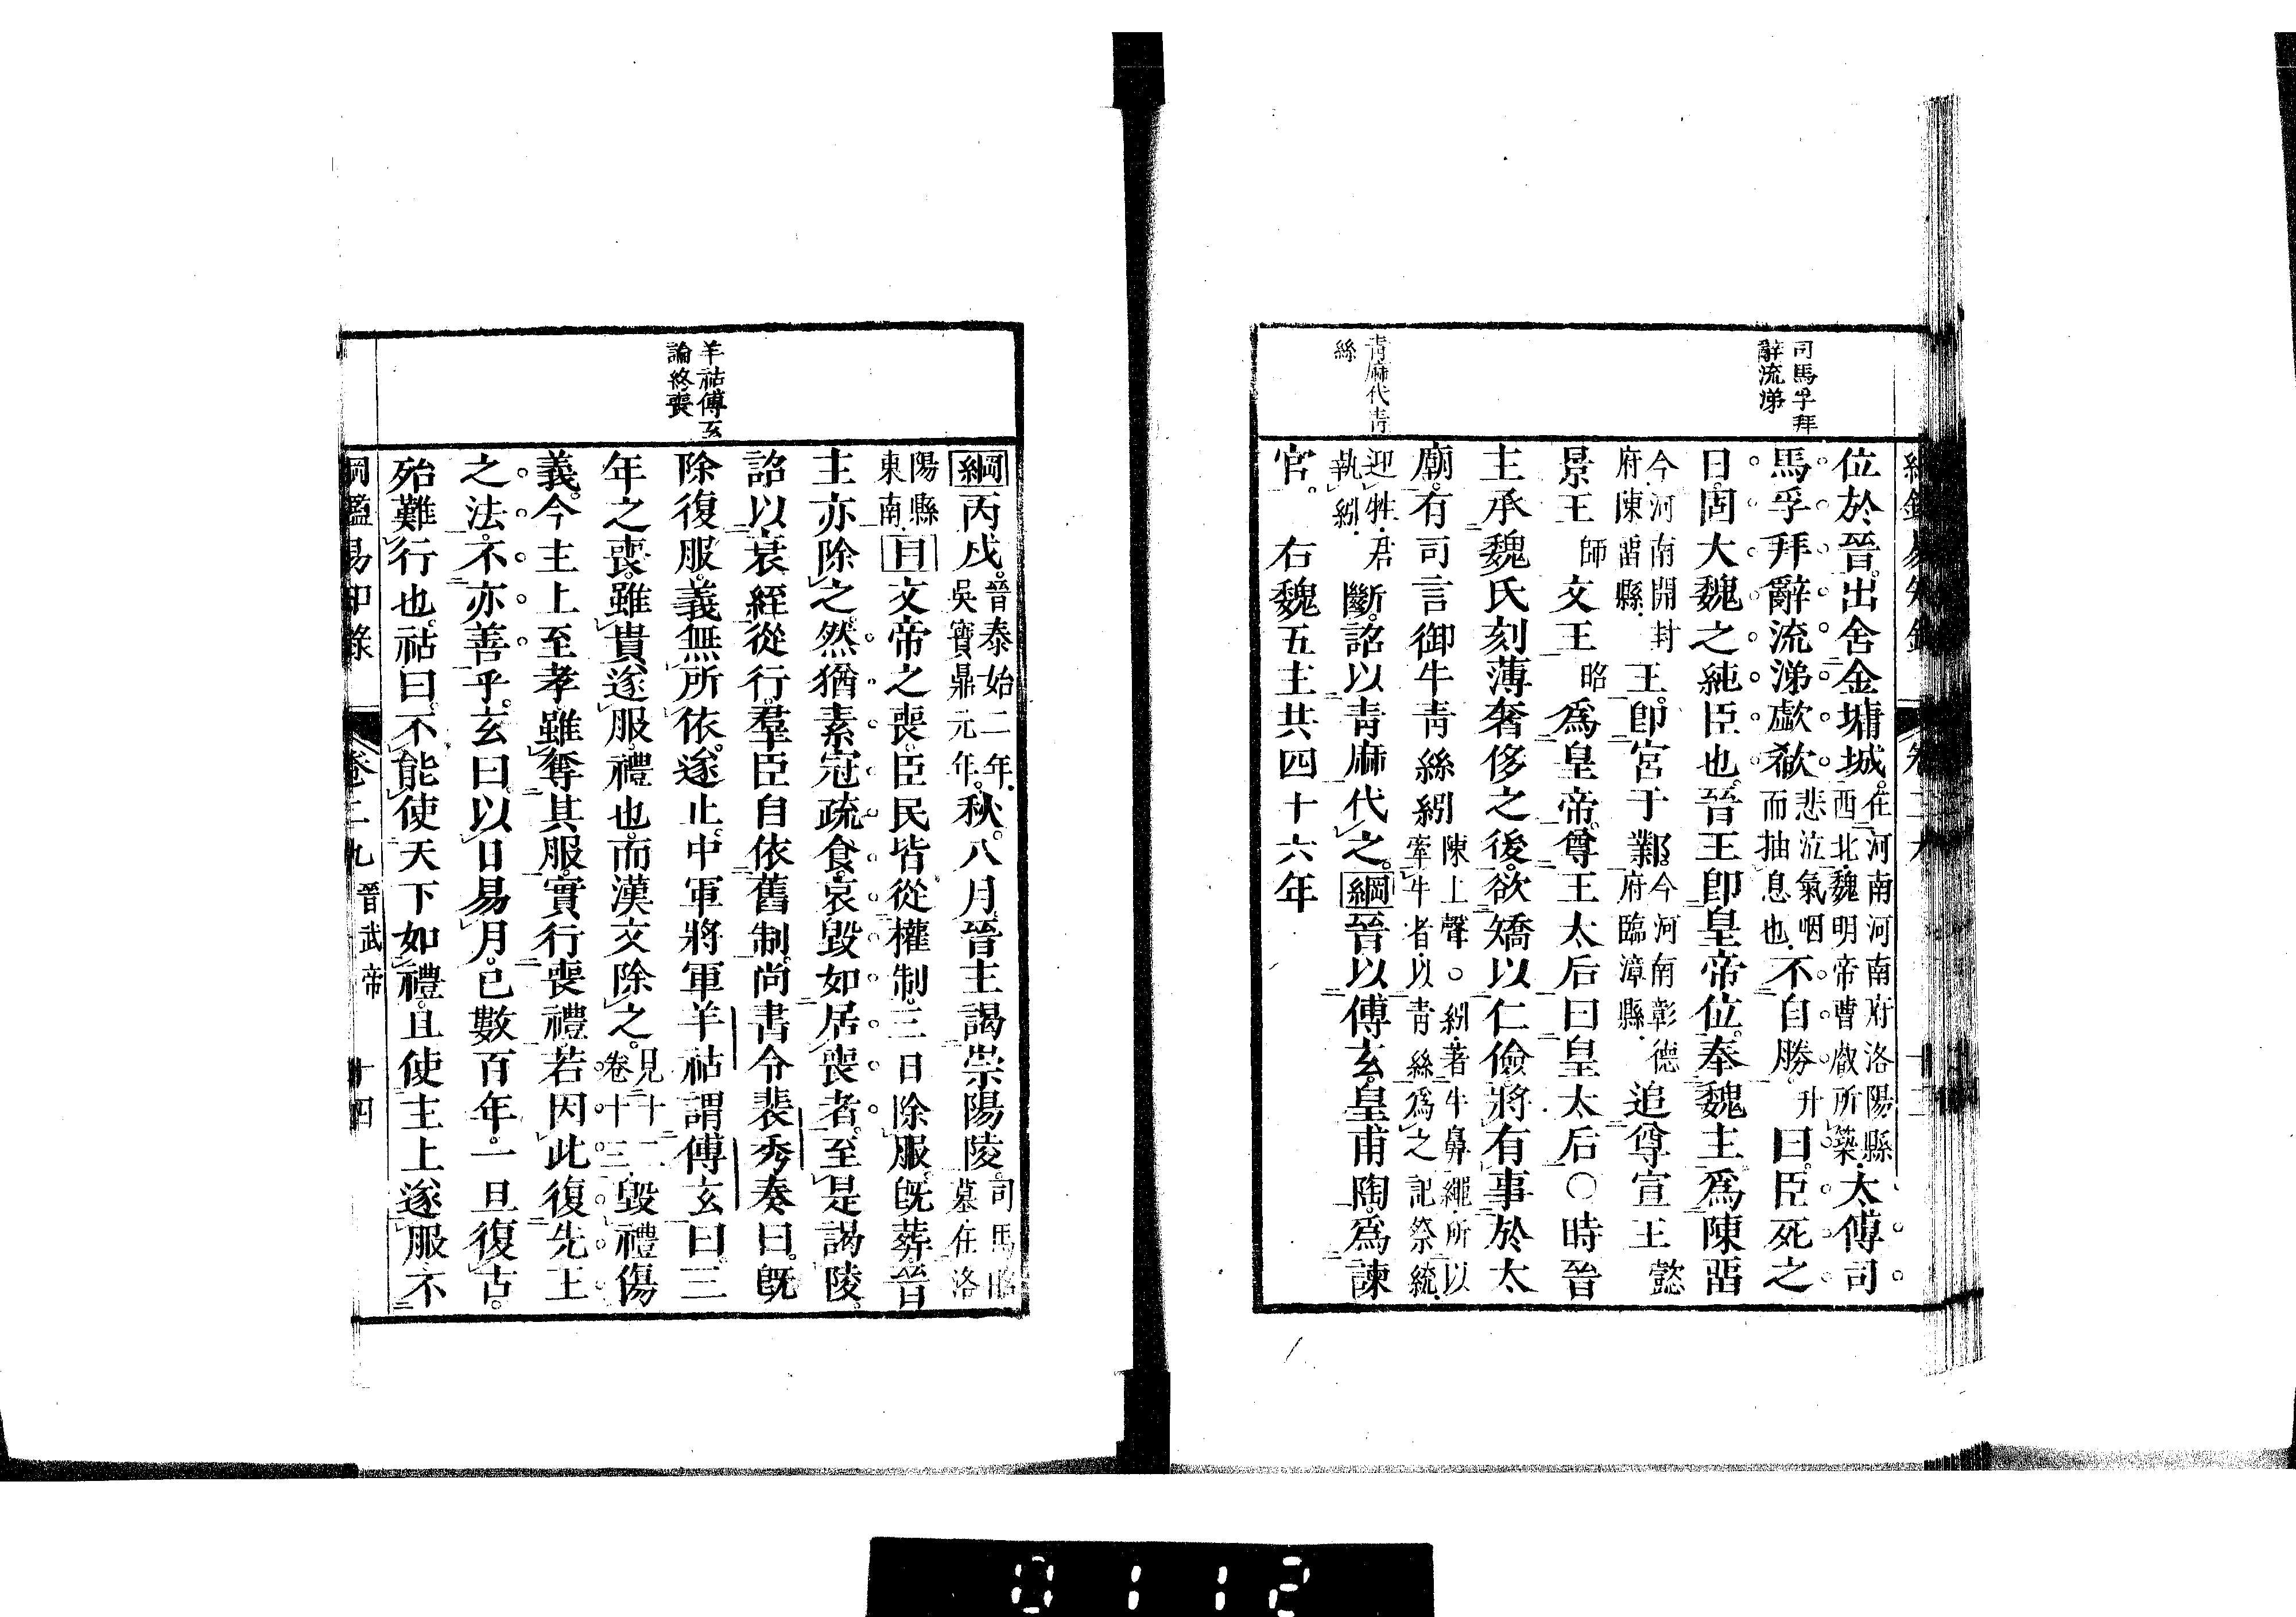 司馬孚拜
辭流涕
青麻代青
絲
位於晉。出舍金墉城。在河南河南府洛陽縣西北。魏明帝曹叡所築。太傅司
馬孚拜辭流涕歔欷悲泣氣咽而抽息也。不自勝。升曰。臣死之
日。固大魏之純臣也。晉王卽皇帝位。奉魏主爲陳畱
今河南開封府陳畱縣。王。卽宮于鄴。今河南彰德府臨漳縣。追尊宣王懿
景王師文王昭爲皇帝。尊王太后曰皇太后〇時晉
主承魏氏刻薄奢侈之後。欲矯以仁儉。將有事於太
廟。有司言御牛青絲紖陳上聲。〇紖。著牛鼻繩。所以牽牛者。以青絲爲之。記祭統。
迎牲。君執紖。斷。詔以青麻代之。綱晉以傅玄。皇甫陶。爲諫
官。　右魏五主共四十六年
羊祜傅玄
論終喪
綱丙戌。晉泰始二年。吳寶鼎元年。秋。八月。晉主謁崇陽陵。司馬昭墓。在洛
陽縣東南。目文帝之喪。臣民皆從權制。三日除服。旣葬。晉
主亦除之。然猶素冠疏食。哀毀如居喪者。至是謁陵。
詔以衰絰從行。羣臣自依舊制。尚書令裴秀奏曰。旣
除復服。義無所依。遂止。中軍將軍羊祜謂傅玄曰。三
年之喪。雖貴遂服。禮也。而漢文除之。見十二卷十三。毀禮傷
義。今主上至孝。雖奪其服。實行喪禮。若因此復先王
之法。不亦善乎。玄曰。以日易月。已數百年。一旦復古。
殆難行也。祜曰。不能使天下如禮。且使主上遂服。不
綱鑑易知錄　卷二九　晉武帝　十四